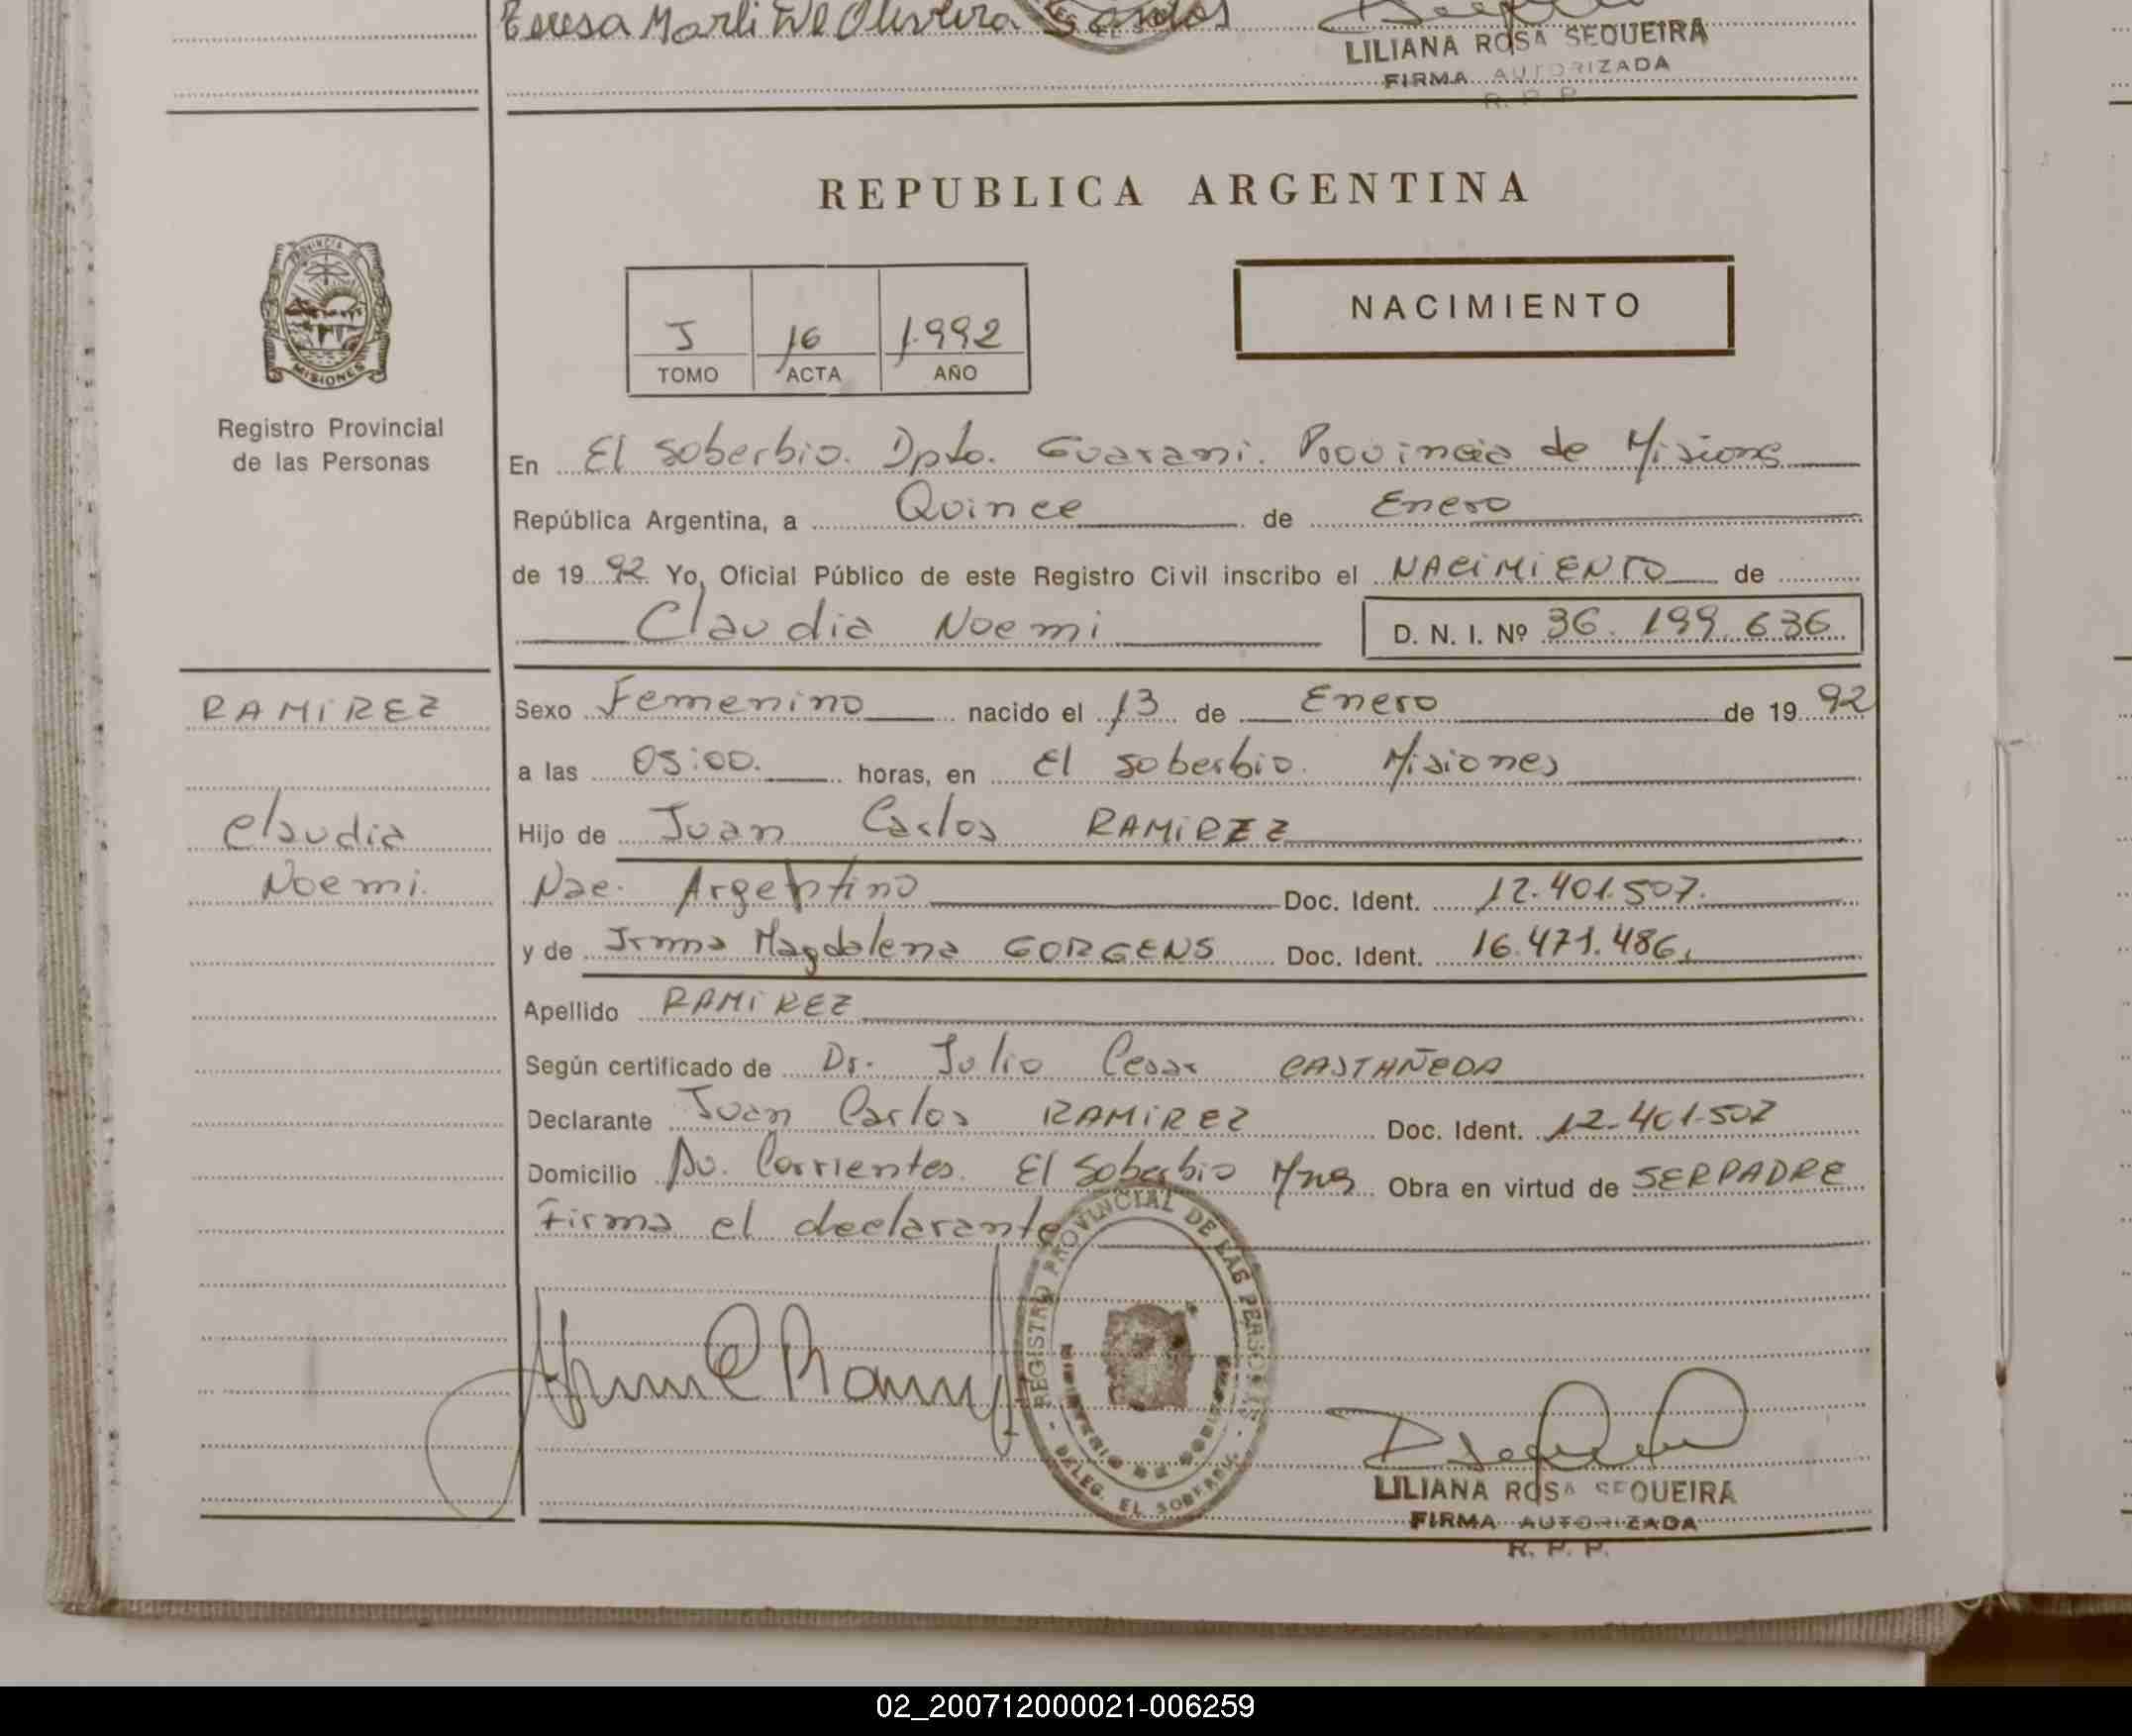 Teresa Marli De Olivera
LILIANA ROSA SEQUEIRA
FIRMA AUTORIZADA
R. P. P.
REPUBLICA ARGENTINA
PROVINCIA DE
MISIONES
Registro Provincial
de las Personas
J 16 1.992
TOMO ACTA AÑO
NACIMIENTO
En El Soberbio. Dpto. Guarani. Provincia de Misiones
República Argentina, a Quince de Enero
de 1992 Yo, Oficial Público de este Registro Civil inscribo el NACIMIENTO de
Claudia Noemi D. N. I. Nº 36.199.636
RAMIREZ
Claudia
Noemi.
Sexo Femenino nacido el 13 de Enero de 1992
a las 05:00. horas, en El Soberbio. Misiones
Hijo de Juan Carlos RAMIREZ
Nac. Argentino Doc. Ident. 12.401.507.
y de Irma Magdalena GORGENS Doc. Ident. 16.471.486.
Apellido RAMIREZ
Según certificado de Dr. Julio Cesar CASTAÑEDA
Declarante Juan Carlos RAMIREZ Doc. Ident. 12.401.507
Domicilio Av. Corrientes. El Soberbio Mnes Obra en virtud de SER PADRE
Firma el declarante
REGISTRO PROVINCIAL DE LAS PERSONAS
MINISTERIO DE GOBIERNO
- DELEG. EL SOBERBIO -
LILIANA ROSA SEQUEIRA
FIRMA AUTORIZADA
R. P. P.
02_200712000021-006259